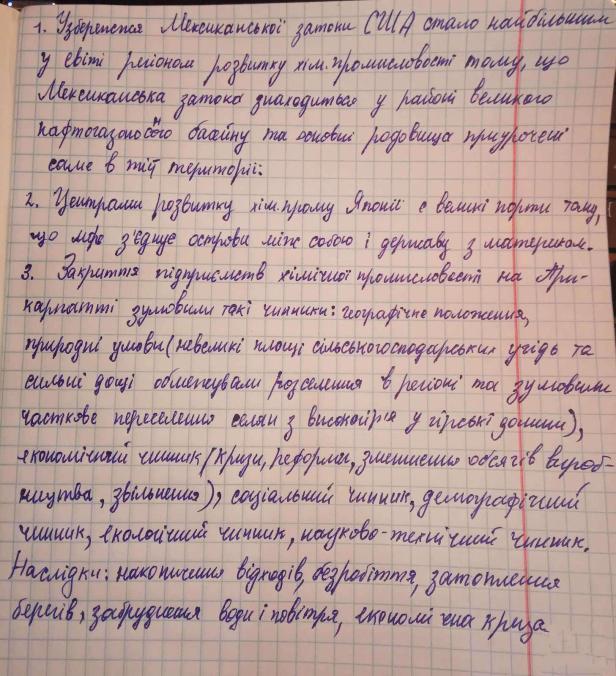 1. Узбережжя Мексиканської затоки США стало найбільшим
у світі регіоном розвитку хім. промисловості тому, що
Мексиканська затока знаходиться у районі великого
нафтогазоносного басйну та основні родовища приурочені
саме в тій території.
2. Центрами розвитку хім. прому Японії є великі порти тому,
що море з'єднує острови між собою і державу з материком.
3. Закриття підприємств хімічної промисловості на При-
карпатті зумовили такі чинники: географічне положення,
природні умови (невеликі площі сільськогосподарських угідь та
сильні дощі обмежували розселення в регіоні та зумовили
часткове переселення селян з високогір'я у гірські долини),
економічний чинник (кризи, реформи, зменшення обсягів вироб-
ництва, звільнення), соціальний чинник, демографічний
чинник, екологічний чинник, науково-технічний чинник.
Наслідки: накопичення відходів, безробіття, затоплення
берегів, забруднення води і повітря, економічна криза